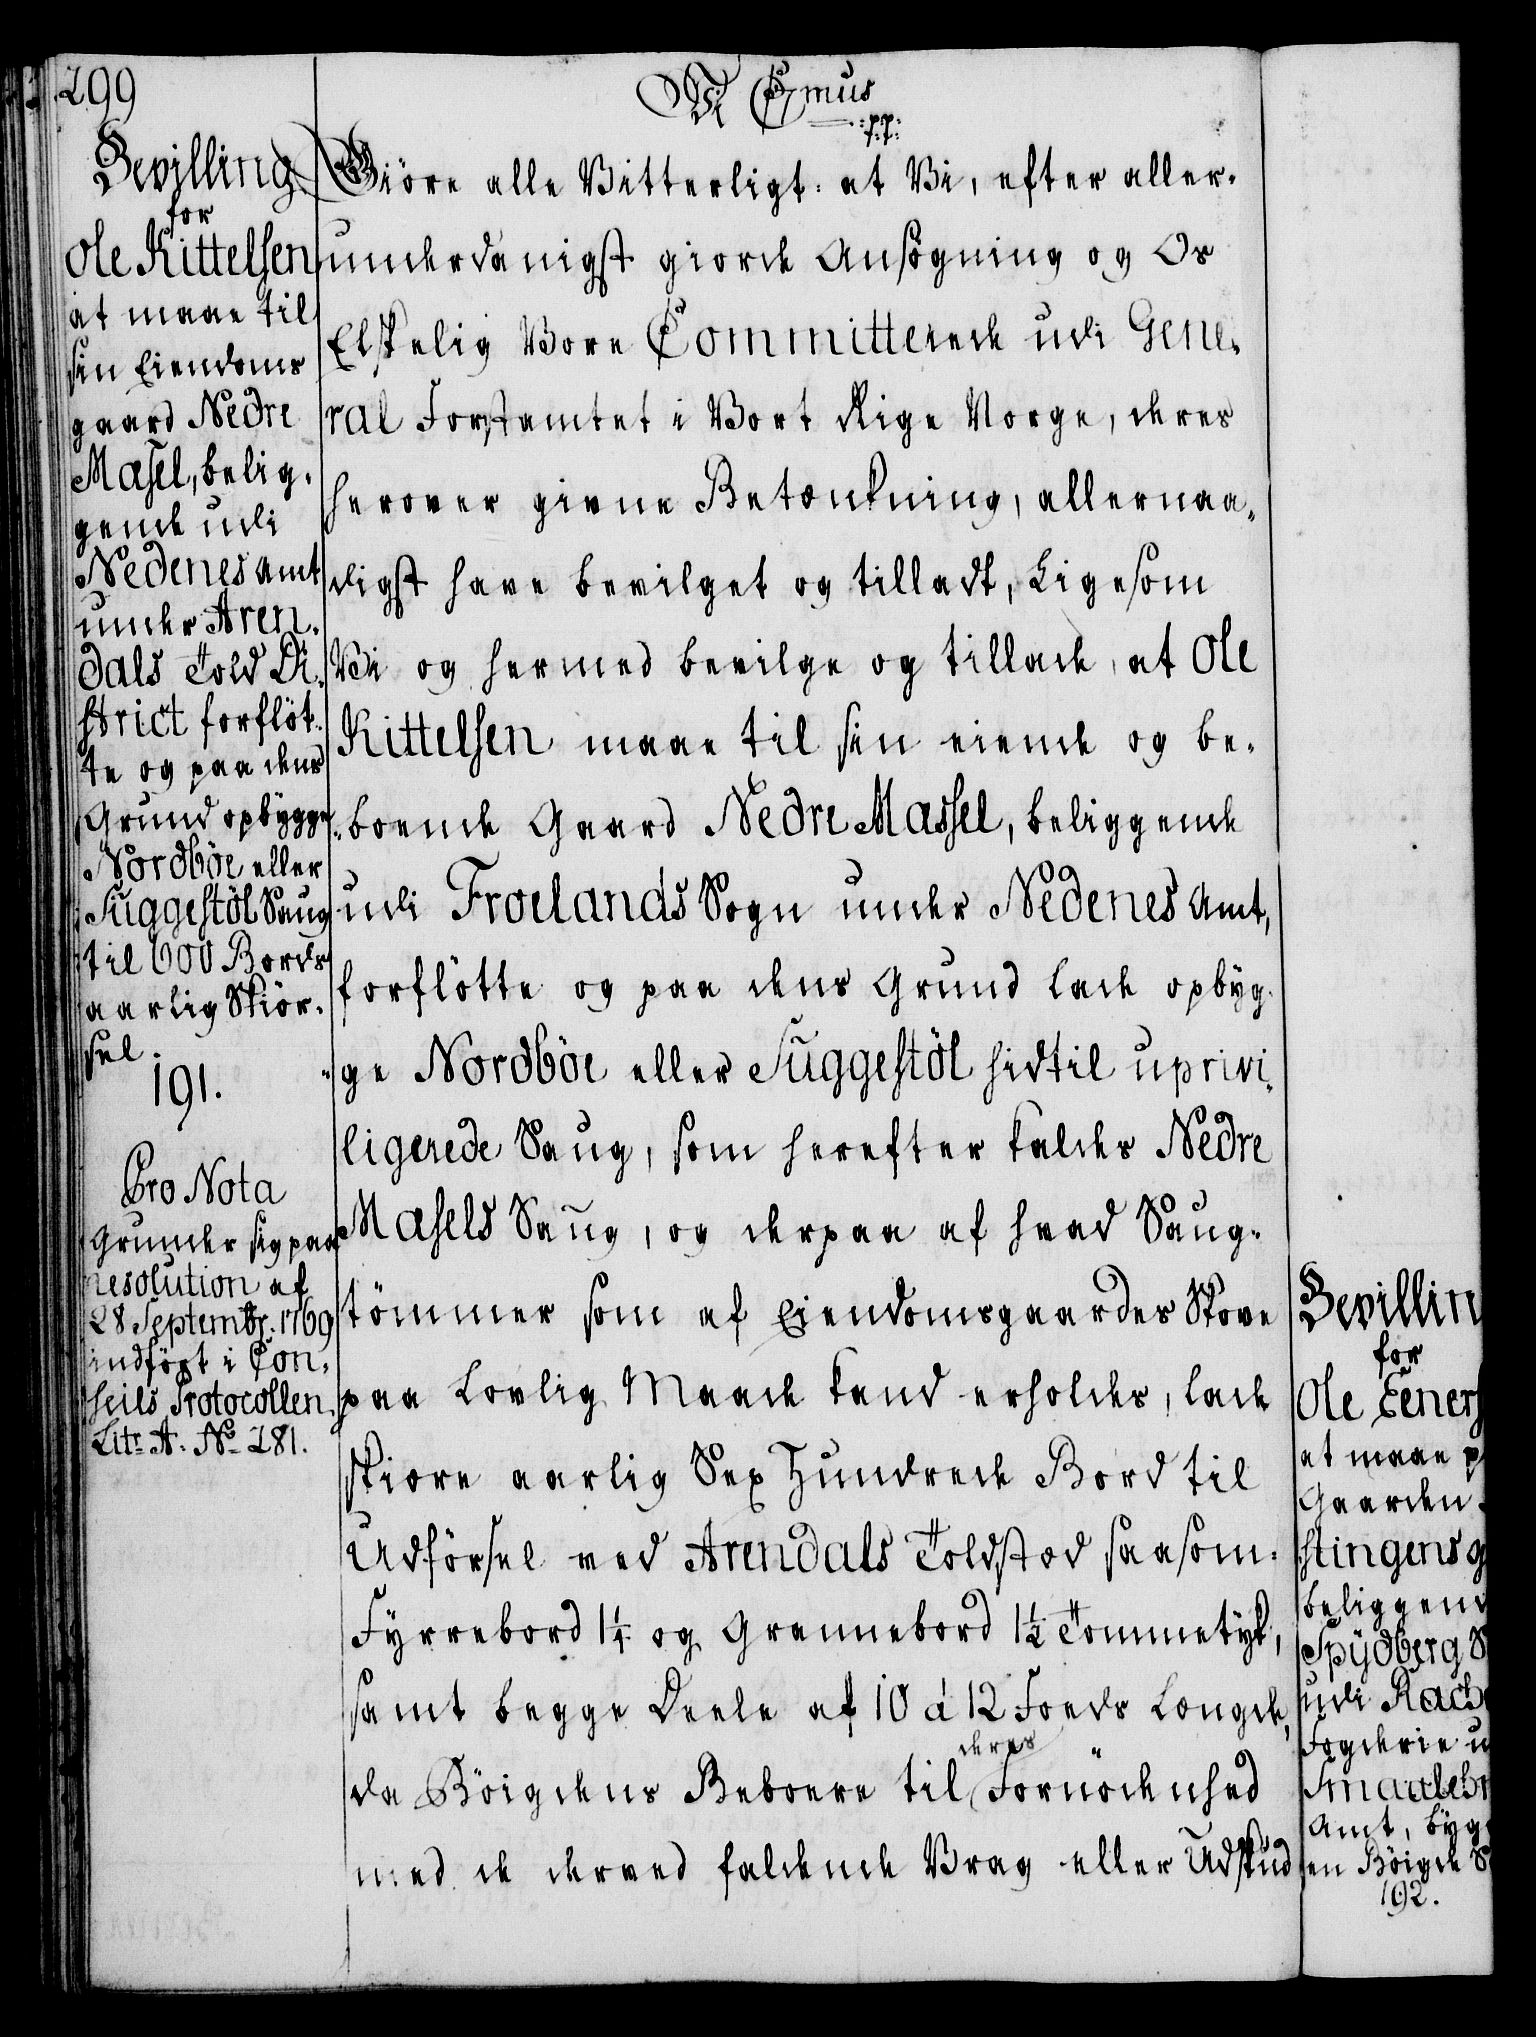 299
Vi Cmus
p.p:
Bevilling
for
Ole Kittelsen
at maae til
sin Eiendoms
gaard Nedre
Masel, belig-
gende udi
Nedenes Amt
under Aren-
dals Told Di-
strict forflöt-
te og paa dens
Grund opbygge
Nordböe eller
Suggestöl Saug
til 600 Bords
aarlig Skiör-
sel.
191.
Pro Nota
Grunder sig paa
resolution af
28 Septembr. 1769
indfört i Con-
seils Protocollen
Litr A. No 281.
Giöre alle Vitterligt: at Vi, efter aller-
underdanigst giorde Ansögning og Os
Elskelig Vore Committerede udi Gene-
ral Forstamtet i Vort Rige Norge, deres
herover givne Betænkning, allernaa-
digst have bevilget og tilladt, Ligesom
Vi og hermed bevilge og tillade, at Ole
Kittelsen maae til sin eiende og be-
boende Gaard Nedre Massel, beliggende
udi Froelands Sogn under Nedenes Amt,
forflötte og paa dens Grund lade opbyg-
ge Nordböe eller Suggestöl hidtil uprivi-
ligerede Saug, som herefter kaldes Nedre
Masels Saug, og derpaa af hvad Saug-
tömmer som af Eiendomsgaardes Skove
paa Lovlig Maade kand erholdes, lade
skiære aarlig Sex Hundrede Bord til
Udförsel ved Arendals Toldstod saasom:
Fyrrebord 1¼ og Grannebord 1½ Tommetyk,
samt begge Deele af 10 á 12 Foeds Længde,
da Böigdens Beboere til deres Fornödenhed
med de derved faldende Vrag eller Udskud
Bevillin
for
Ole Eeners
at maae p
Gaarden
stingens g
beliggend
Spydberg S
udi Rach
Fogderie u
Smaaleh
Amt, byg
en Böigde S
192.